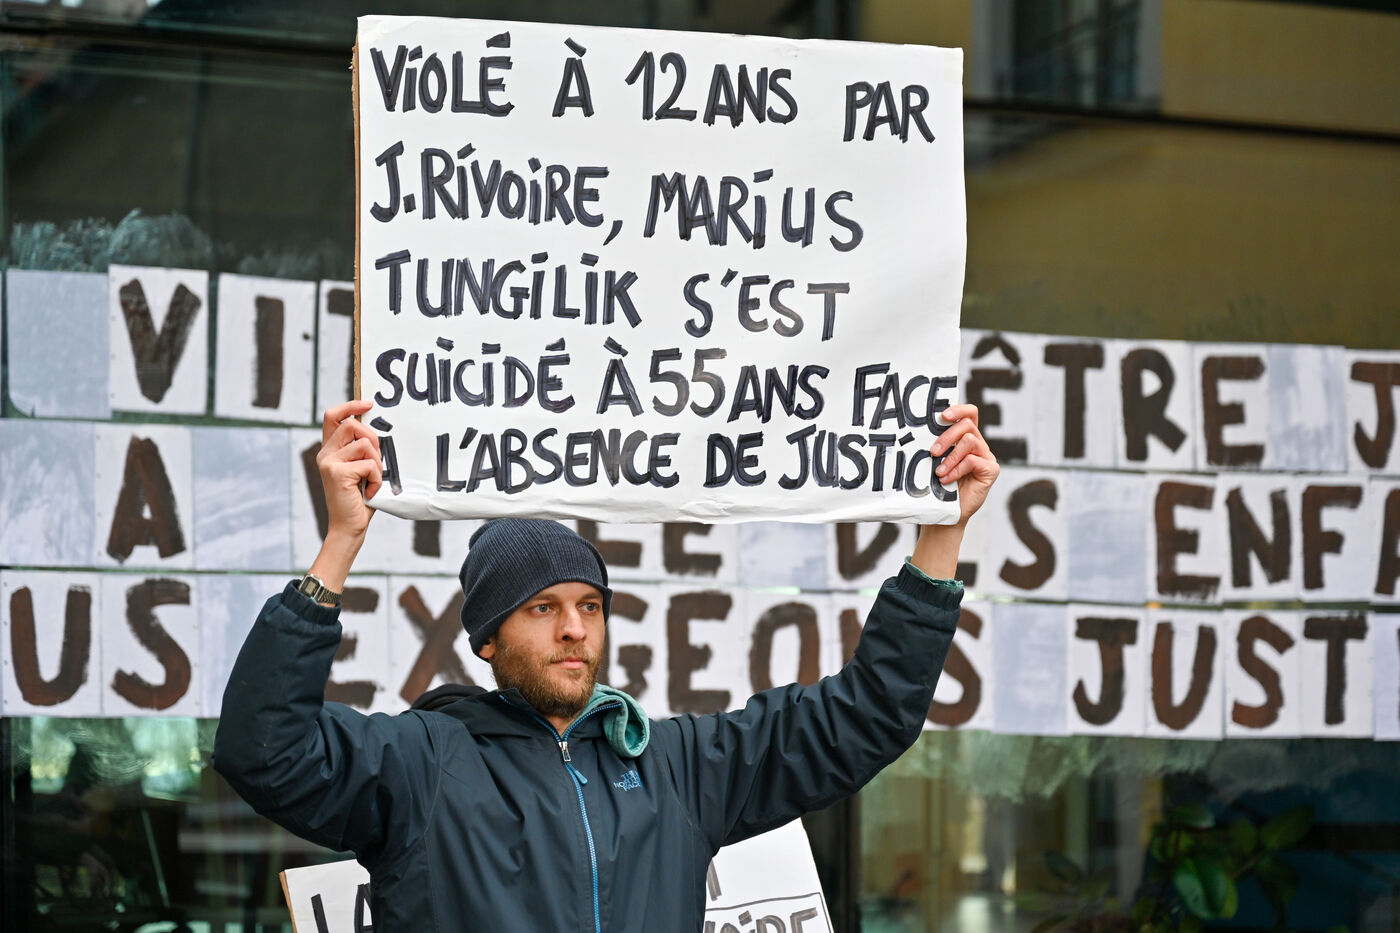 VIOLÉ À 12 ANS PAR
J. RIVOIRE, MARIUS
TUNGILIK S'EST
SUICIDÉ À 55 ANS FACE
À L'ABSENCE DE JUSTICE
ÊTRE
A DES ENFA
US EXIGEONS JUST
THE NORTH FACE
LA